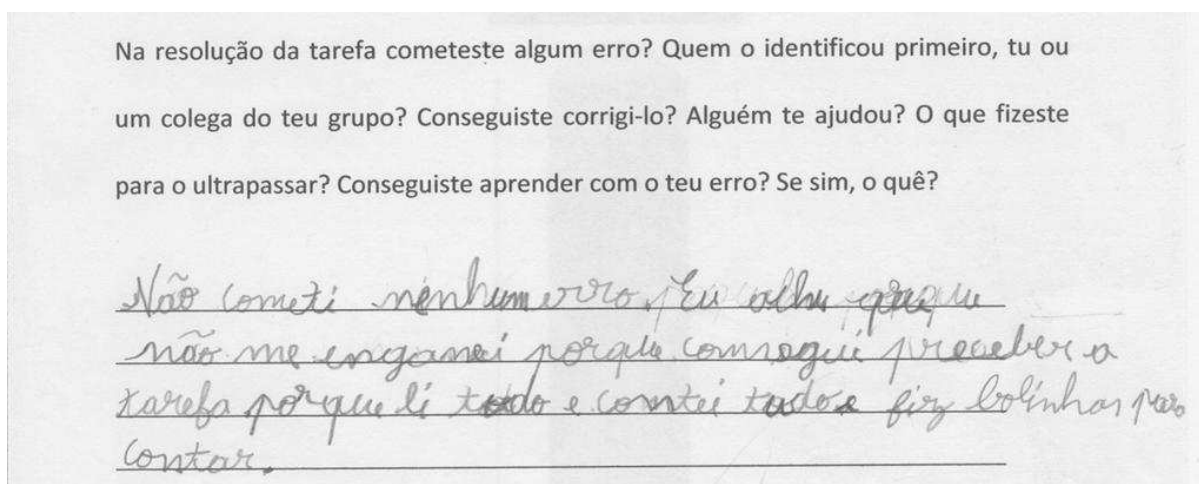 Na resolução da tarefa cometeste algum erro? Quem o identificou primeiro, tu ou
um colega do teu grupo? Conseguiste corrigi-lo? Alguém te ajudou? O que fizeste
para o ultrapassar? Conseguiste aprender com o teu erro? Se sim, o quê?
Não cometi nenhum erro. Eu
não me enganei porque consegui preceber a
tarefa porque li todo e contei tudo e fiz bolinhas para
contar.